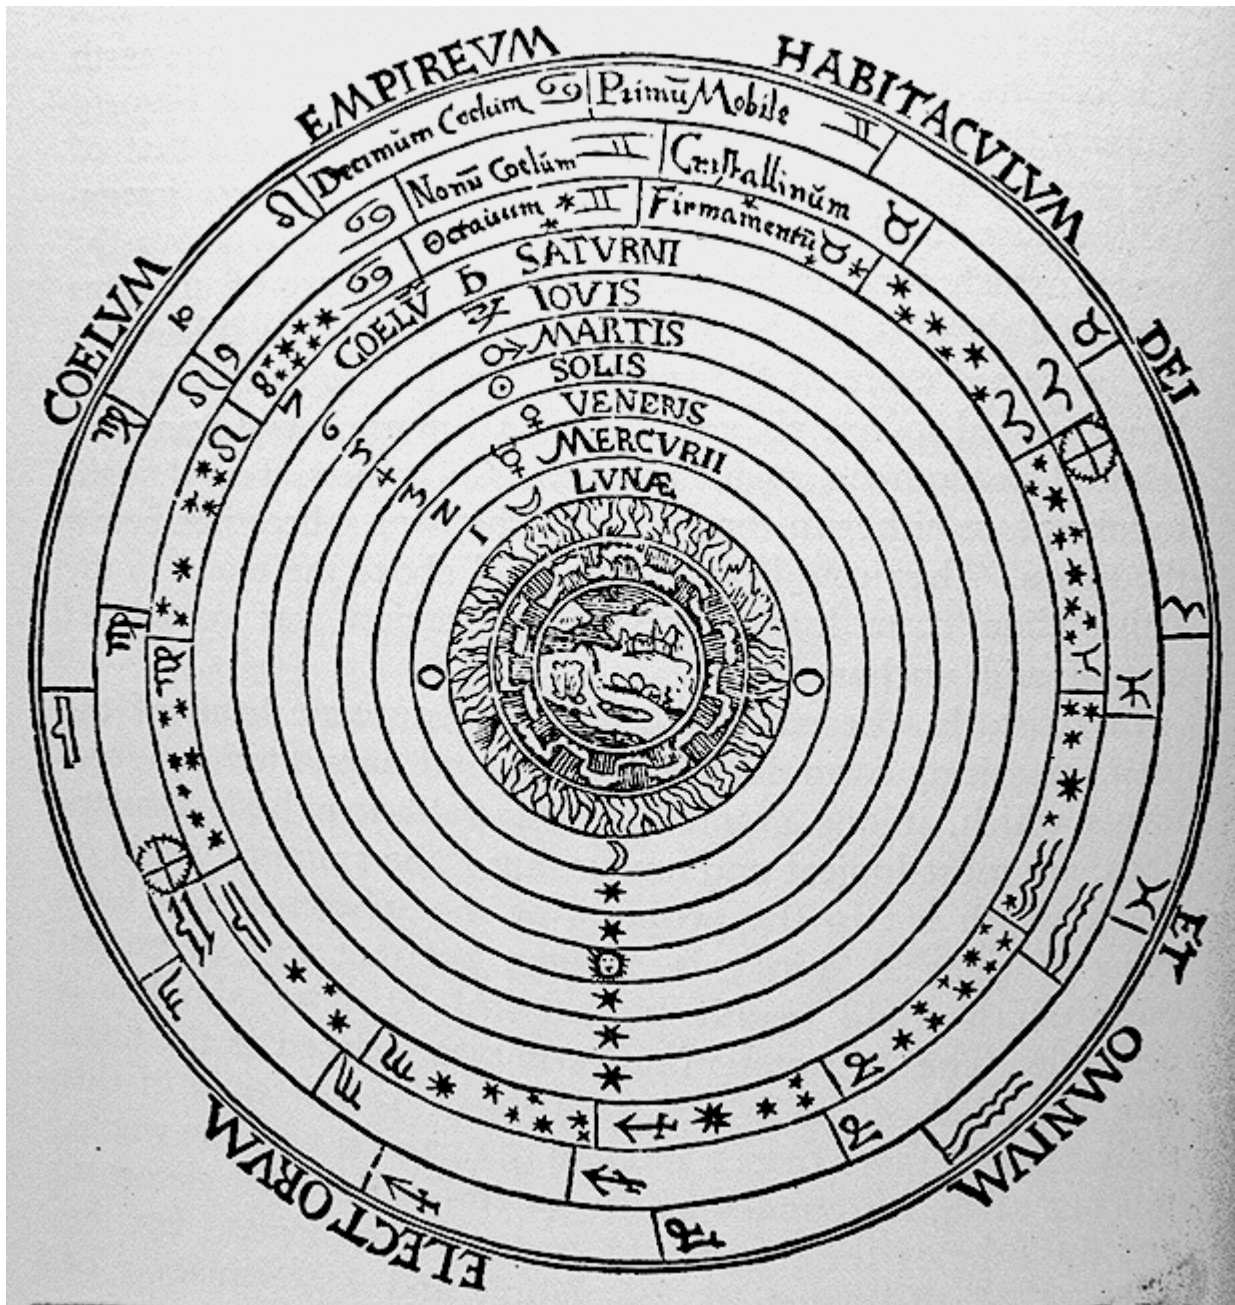 COELVM EMPIREVM HABITACVLVM DEI ET OMNIVM ELECTORVM
Decimũm Coelum Primũ Mobile
Nonũ Coelũm Cristallinũm
Octauum Firmamentũ
COELV̄ SATVRNI
IOVIS
MARTIS
SOLIS
VENERIS
MERCVRII
LVNÆ
10
9
8
7
6
5
4
3
2
1